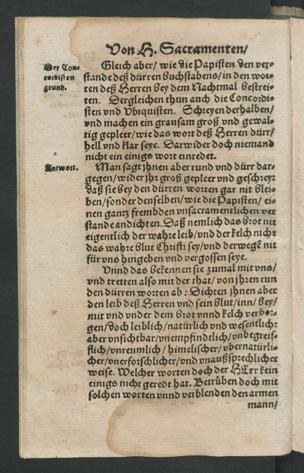 Von H. Sacramenten/
Der Con-
cordisten
grund.
Gleich aber/ wie die Papisten den ver-
stande deß dürren buchstabens/ in den wor-
ten deß Herren bey dem Nachtmal bestrei-
ten. Dergleichen thun auch die Concordi-
sten vnd Vbiquisten. Schreyen derhalben/
vnd machen ein grausam groß vnd gewal-
tig gepleer/ wie das wort deß Herren dürr/
hell vnd klar seye. Darwider doch niemand
nicht ein einigs wort einredet.
Antwort.
Man sagt jhnen aber rund vnd dürr dar-
gegen/ wider jhr groß gepleer vnd geschrey:
daß sie bey den dürren worten gar nit blei-
ben/ sonder denselben/ wie die Papisten/ ei-
nen gantz frembden vnsacramenlichen ver-
stande andichten. Daß nemlich das brot nit
eigentlich der wahre leib/ vnd der kelch nicht
das wahre blut Christi sey/ vnd derwegē nit
für vns hingeben vnd vergossen seye.
Vnnd das bekennen sie zumal mit vns/
vnd tretten also mit der that/ von jhren run
den dürren worten ab: Dichten jhnen aber
den leib deß Herren vnd sein blut/ inn/ bey/
mit vnd vnder dem brot vnnd kelch verbor-
gen/ doch leiblich/ natürlich vnd wesentlich:
aber vnsichtbar/ vnempfindtlich/ vnbegreif-
flich/ vnreumlich/ himelischer/ vbernatürli-
cher/ vnerforschlicher/ vnd vnaußsprechlicher
weise. Welcher worten doch der HErr kein
einigs nicht geredt hat. Betrüben doch mit
solchen worten vnnd verblenden den armen
mann/